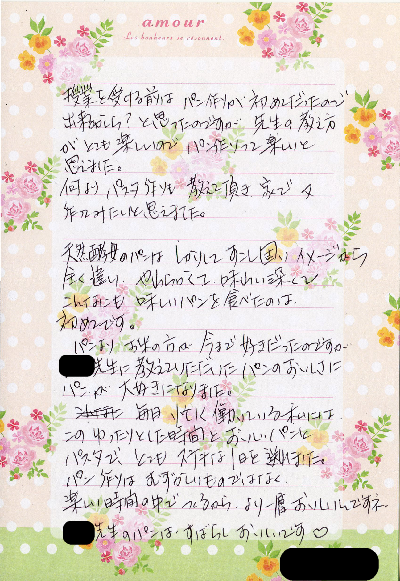 amour
Les bonheurs se
授業を受ける前は パン作りが初めてだったので
出来るかしら?と思ったのですが 先生の教え方
がとても楽しいので パン作りって楽しいと
思えました。
何より パスタ作りも 教えて頂き 家で
作ってみたいと思えました。
天然酵母のパンは しっかりして すこし固いイメージから
全く違い、やわらかくて 味わい深くて
こんなにも 味しいパンを食べたのは
初めてです。
パンより お米の方が 今まで好きだったのですが
先生に教えていただいた パンのおいしさに
パンが 大好きになりました。
毎日 忙しく働いている私には
このゆったりとした時間と おいしいパンと
パスタで、とても ステキな1日を 過ごせました。
パン作りは むずかしいものではなく
楽しい時間の中で つくるから より一層おいしいんですネ
先生のパンは すばらしく おいしいです♡